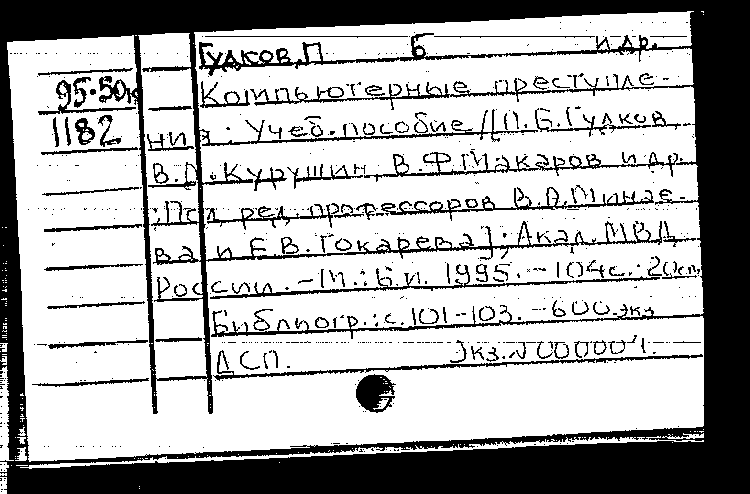 Гудков, П Б и др.
95-50к
Компьютерные преступле-
1182
ния: Учеб. пособие / [П.Б.Гудков,
В.О. Курушин, В.Ф.Макаров и др.
; Под ред. профессоров В.А.Минае-
ва и Е.В. Токарева]; Акад. МВД
России. - М.: Б.и. 1995. - 104с.: 20см.
Библиогр.: с.101-103. - 600.экз
ДСП. Экз.N 000001.